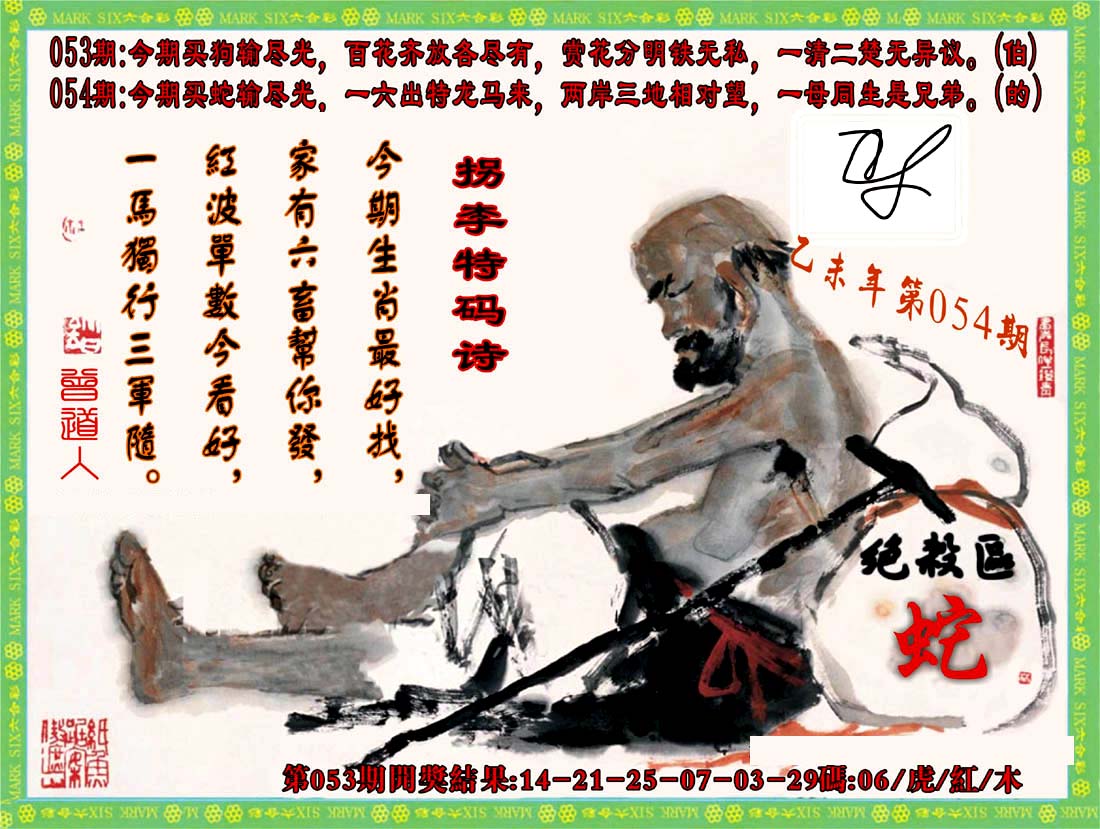 053期:今期买狗输尽光，百花齐放各尽有，赏花分明铁无私，一清二楚无异议。(伯)
054期:今期买蛇输尽光．一六出特龙马来，两岸三地相对望，一母同生是兄弟。(的)
乙未年第054期
拐李特码诗
今期生肖最好找，
家有六畜幫你發，
紅波單數今看好，
一馬獨行三軍隨。
曾道人
绝殺區
蛇
第053期開獎結果:14-21-25-07-03-29碼:06/虎/紅/木
MARK SIX六合彩